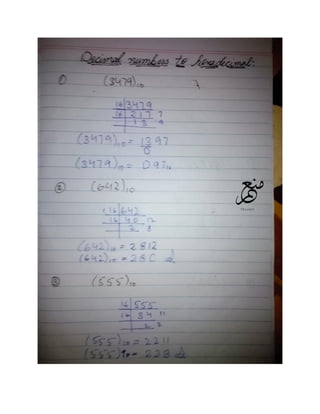 Decimal numbers to hexadecimal:
① (3479)10
16 3479
16 217 7
13 9
(3479)10 = 1397
D
(3479)10 = D9716
② (642)10
16 642
16 40 12
2 8
(642)10 = 2812
(642)10 = 28C
③ (555)10
16 555
16 34 11
2 2
(555)10 = 2211
(555)10 = 22B